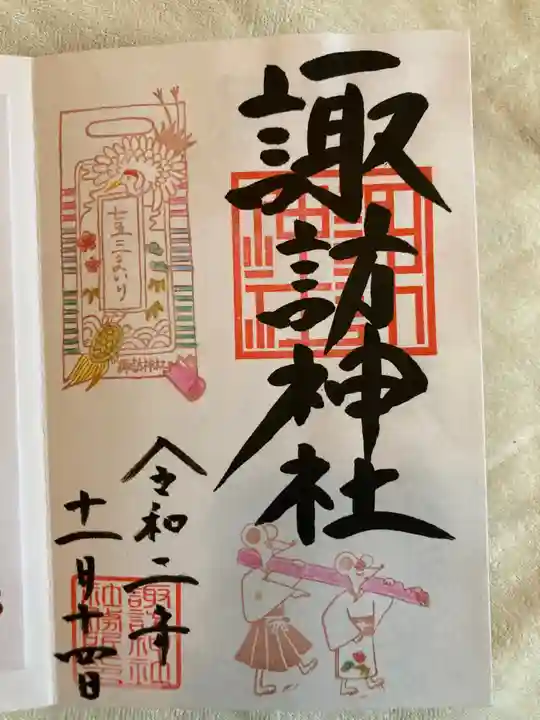 諏訪神社
七五三まいり
諏訪神社
令和二年
十一月十四日
諏訪神社
社務所之印